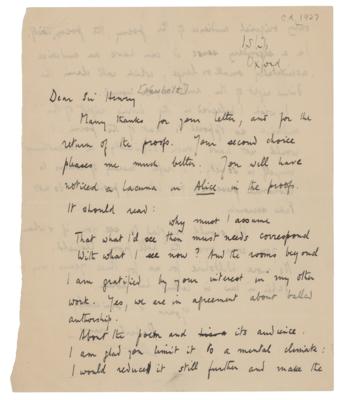 ca 1927
Oxford
Dear Sir Henry
[Newbolt]
Many thanks for your letter, and for the
return of the proofs. Your second choice
pleases me much better. You will have
noticed a lacuna in Alice in the proofs.
It should read:
why must I assume
That what I'd see then must needs correspond
With what I see now? And the rooms beyond
I am gratified by your interest in my other
work. Yes, we are in agreement about ballad
authorship.
About the poem and its audience.
I am glad you limit it to a mental climate:
I would reduce it still further and make the